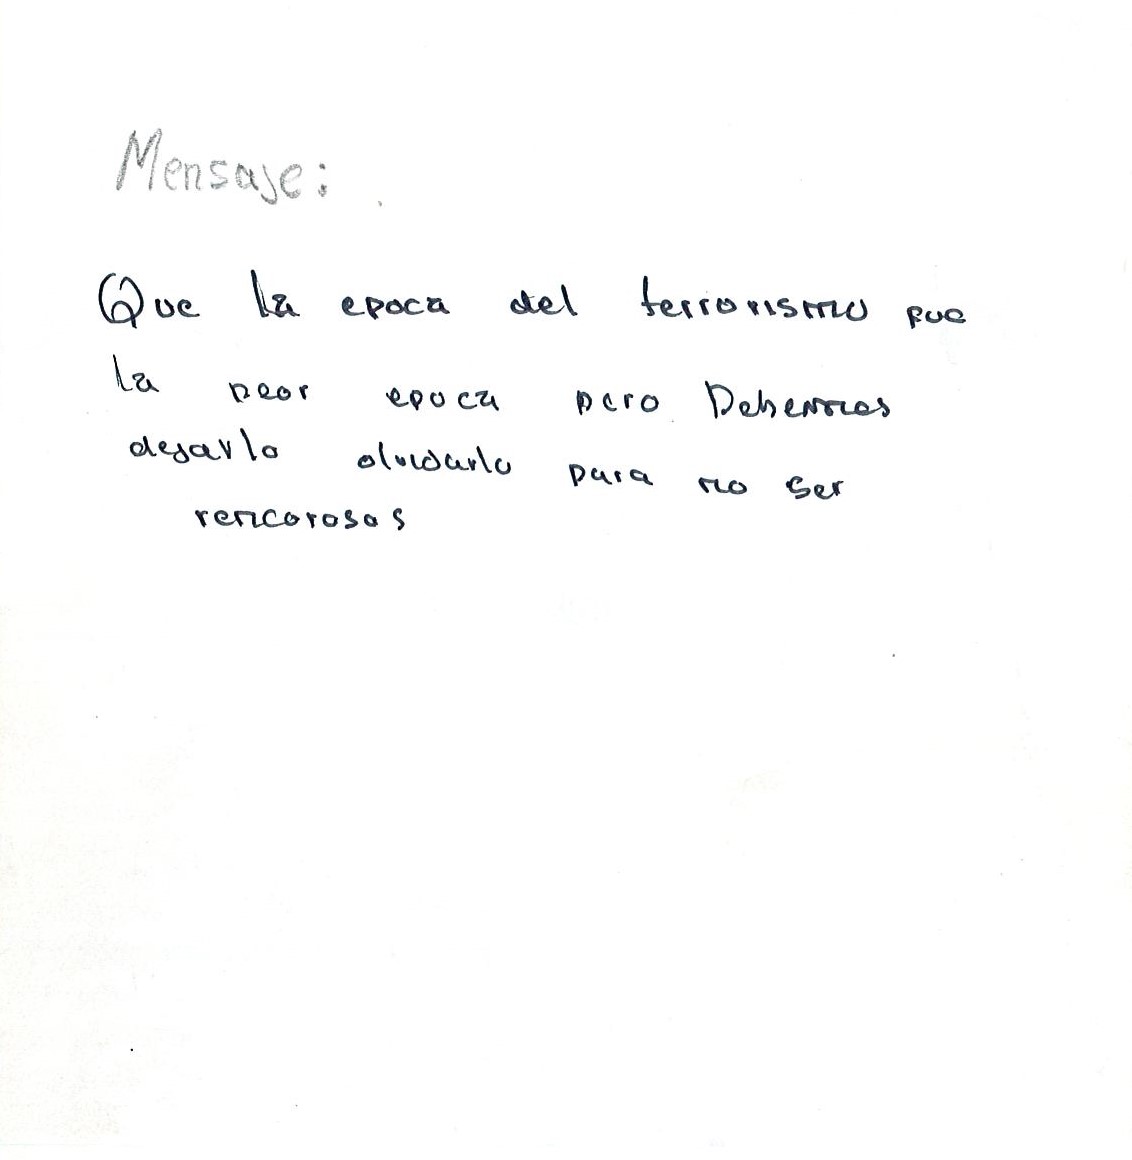 Mensaje:
Que la epoca del terrorismo fue
la peor epoca pero Debemos
dejarlo olvidarlo para no ser
rencorosas